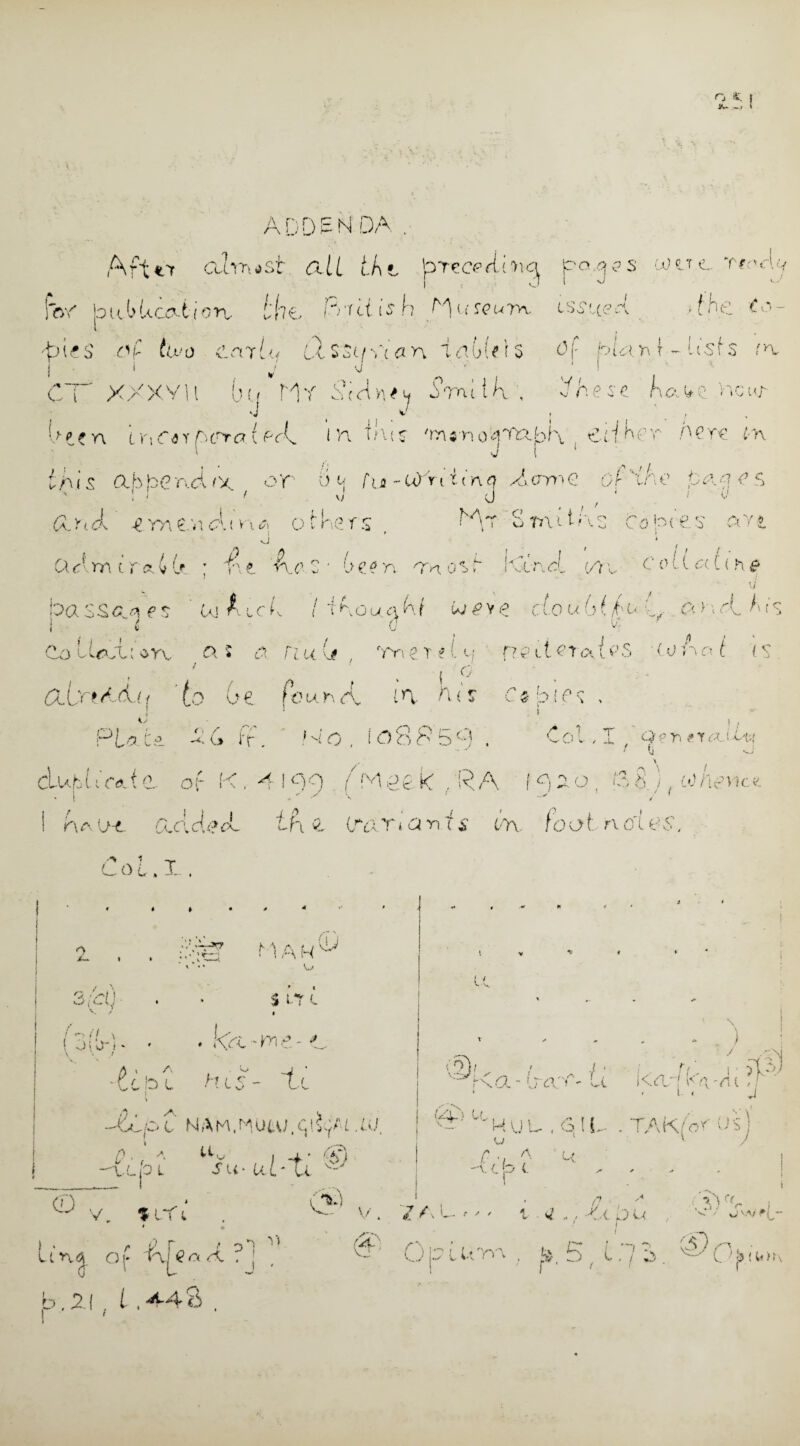 251
ADDENDA.
After almost all the preceding pages were ready
for publication the British Museum issued the co-
pies of two early Assyrian tablets of plant-lists in
CT XXXVII by Mr Sidney Smith. These have now
been incorporated in this monograph, either here in
this appendix, or by re-writing some of the pages
and emending others. Mr Smith's copies are
admirable; he has been most kind in collating
passages which I thought were doubtful, and his
collation, as a rule, merely reiterates what is
already to be found in his copies.
Plate 26 ff. No. 108859. Col. I, generally
duplicate of K. 4199 (Meek, RA 1920, 38), whence
I have added the variants in footnotes.
Col. I.
2 . . MAḪ①
3(a) . . ŠITI
(3(b)- . . ka-me-e
②Ka-bar-ti ka-[ka-di?]③
šipi ḫis-ti
šipi NAM.MULU.
④ ḪUL.GIL.TAK(or US)
šipi šu-ul-ti⑤
šipi
① v. šiti . ② v. ZAL--- i -e ., šipu ③ Swel-
ling of h[ead ?]" ④ Opium, p. 5, l. 73. ⑤ Opium
p. 21, l. 448.